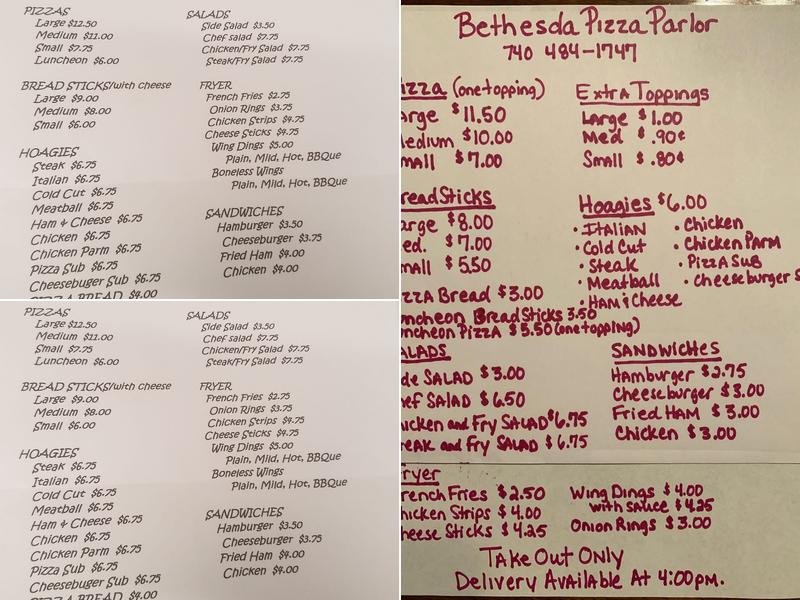 PIZZAS
Large $12.50
Medium $11.00
Small $7.75
Luncheon $6.00
BREAD STICKS/with cheese
Large $9.00
Medium $8.00
Small $6.00
HOAGIES
Steak $6.75
Italian $6.75
Cold Cut $6.75
Meatball $6.75
Ham & Cheese $6.75
Chicken $6.75
Chicken Parm $6.75
Pizza Sub $6.75
Cheesebuger Sub $6.75
PIZZA BREAD $4.00
SALADS
Side Salad $3.50
Chef salad $7.75
Chicken/Fry Salad $7.75
Steak/Fry Salad $7.75
FRYER
French Fries $2.75
Onion Rings $3.75
Chicken Strips $4.75
Cheese Sticks $4.75
Wing Dings $5.00
Plain, Mild, Hot, BBQue
Boneless Wings
Plain, Mild, Hot, BBQue
SANDWICHES
Hamburger $3.50
Cheeseburger $3.75
Fried Ham $4.00
Chicken $4.00
PIZZAS
Large $12.50
Medium $11.00
Small $7.75
Luncheon $6.00
BREAD STICKS/with cheese
Large $9.00
Medium $8.00
Small $6.00
HOAGIES
Steak $6.75
Italian $6.75
Cold Cut $6.75
Meatball $6.75
Ham & Cheese $6.75
Chicken $6.75
Chicken Parm $6.75
Pizza Sub $6.75
Cheesebuger Sub $6.75
PIZZA BREAD $4.00
SALADS
Side Salad $3.50
Chef salad $7.75
Chicken/Fry Salad $7.75
Steak/Fry Salad $7.75
FRYER
French Fries $2.75
Onion Rings $3.75
Chicken Strips $4.75
Cheese Sticks $4.75
Wing Dings $5.00
Plain, Mild, Hot, BBQue
Boneless Wings
Plain, Mild, Hot, BBQue
SANDWICHES
Hamburger $3.50
Cheeseburger $3.75
Fried Ham $4.00
Chicken $4.00
Bethesda Pizza Parlor
740 484-1747
izza (one topping)
arge $11.50
edium $10.00
mall $7.00
Extra Toppings
Large $1.00
Med $.90¢
Small $.80¢
read Sticks
arge $8.00
ed. $7.00
mall $5.50
zza Bread $3.00
ncheon Bread Sticks 3.50
ncheon Pizza $5.50 (one topping)
Hoagies $6.00
• Italian
• Cold Cut
• Steak
• Meatball
• Ham & Cheese
• Chicken
• Chicken Parm
• Pizza Sub
• cheeseburger S
alads
de Salad $3.00
ef Salad $6.50
icken and Fry Salad $6.75
eak and Fry Salad $6.75
Sandwiches
Hamburger $2.75
Cheeseburger $3.00
Fried Ham $3.00
Chicken $3.00
ryer
rench Fries $2.50
hicken Strips $4.00
heese Sticks $4.25
Wing Dings $4.00
with sauce $4.25
Onion Rings $3.00
Take Out Only
Delivery Available At 4:00pm.